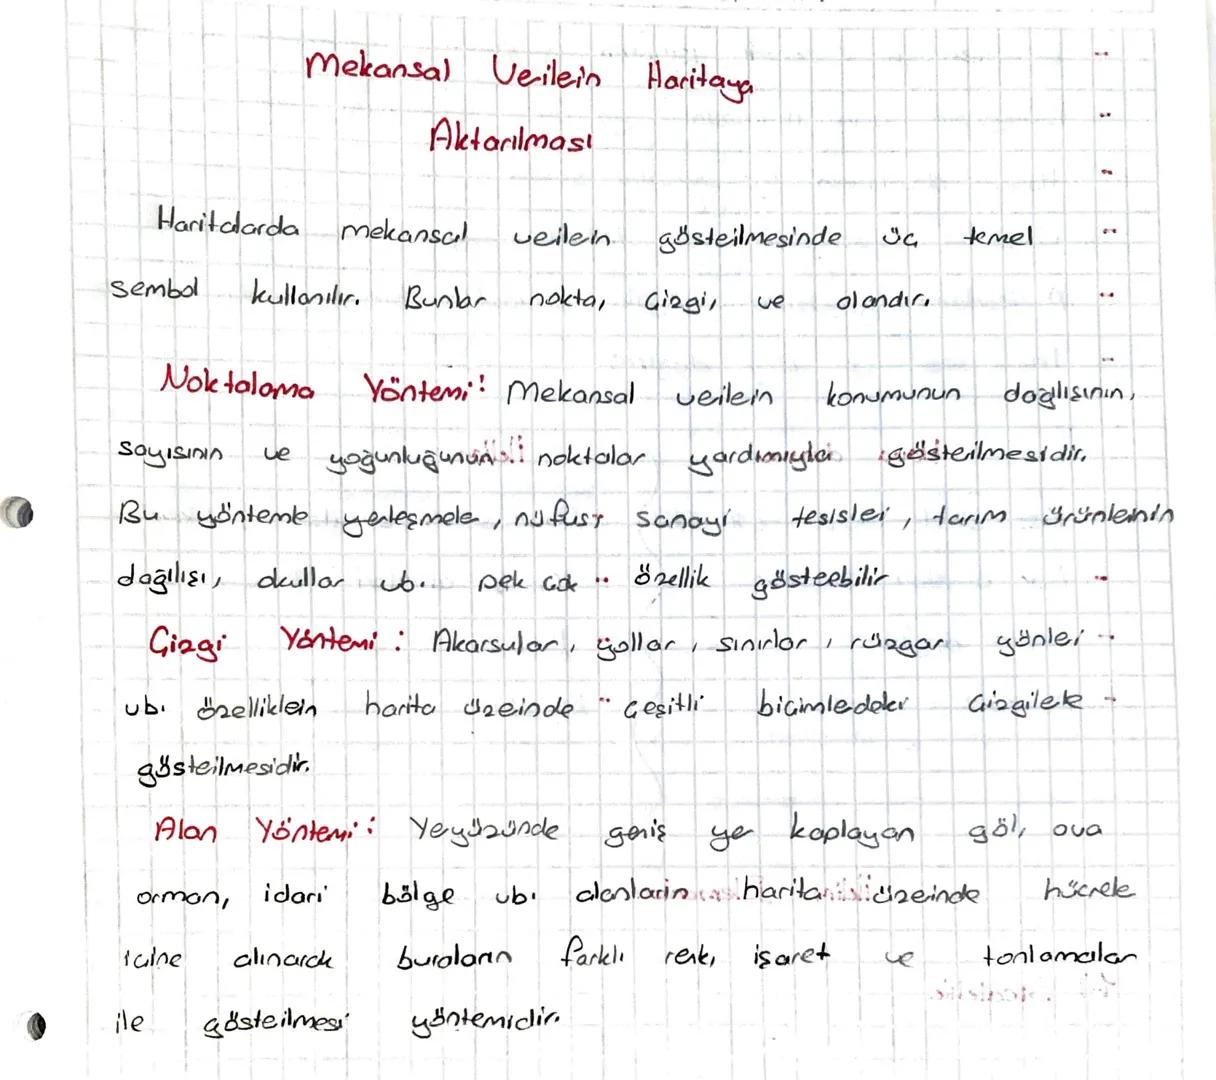 Mekansal Verilerin Haritaya
Aktarılması
Haritalarda mekansal verilerin gösterilmesinde üç temel
sembol kullanılır. Bunlar nokta, Çizgi, ve alandır.
Noktalama Yöntemi: Mekansal verilerin konumunun dağılışının,
sayısının ve yoğunluğunun noktalar yardımıyla gösterilmesidir.
Bu yöntemle yerleşmeler, nüfus, sanayi tesisleri, tarım ürünlerinin
dağılışı, okullar vb. pek çok özellik gösterebilir
Çizgi Yöntemi: Akarsular, yollar, sınırlar, rüzgar yönleri
vb. özelliklerin harita üzerinde çeşitli biçimlerdeki Çizgilerle
gösterilmesidir.
Alan Yöntemi: Yeryüzünde geniş yer kaplayan göl, ova
orman, idari bölge vb. alanların harita üzerinde hücreler
içine alınarak buraların farklı renk, işaret ve tonlamalar
ile gösterilmesi yöntemidir.